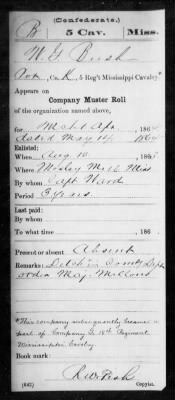 (Confederate.)
B 5 Cav. Miss.
W. G. Bush
Co. K, 5 Reg't Mississippi Cavalry*
Appears on
Company Muster Roll
of the organization named above,
for Mch & Apr, 1864
dated May 14 1864
Enlisted:
When Aug 10, 1863
Where Mill Miss
By whom Capt Ward
Period 3 years
Last paid:
By whom
To what time , 186
Present or absent Absent
Remarks: Detch in Comsy Dept
order Maj.
*This company subsequently became a
part of Company 18th Regiment
Mississippi Cavalry.
Book mark:
(642) Copyist.